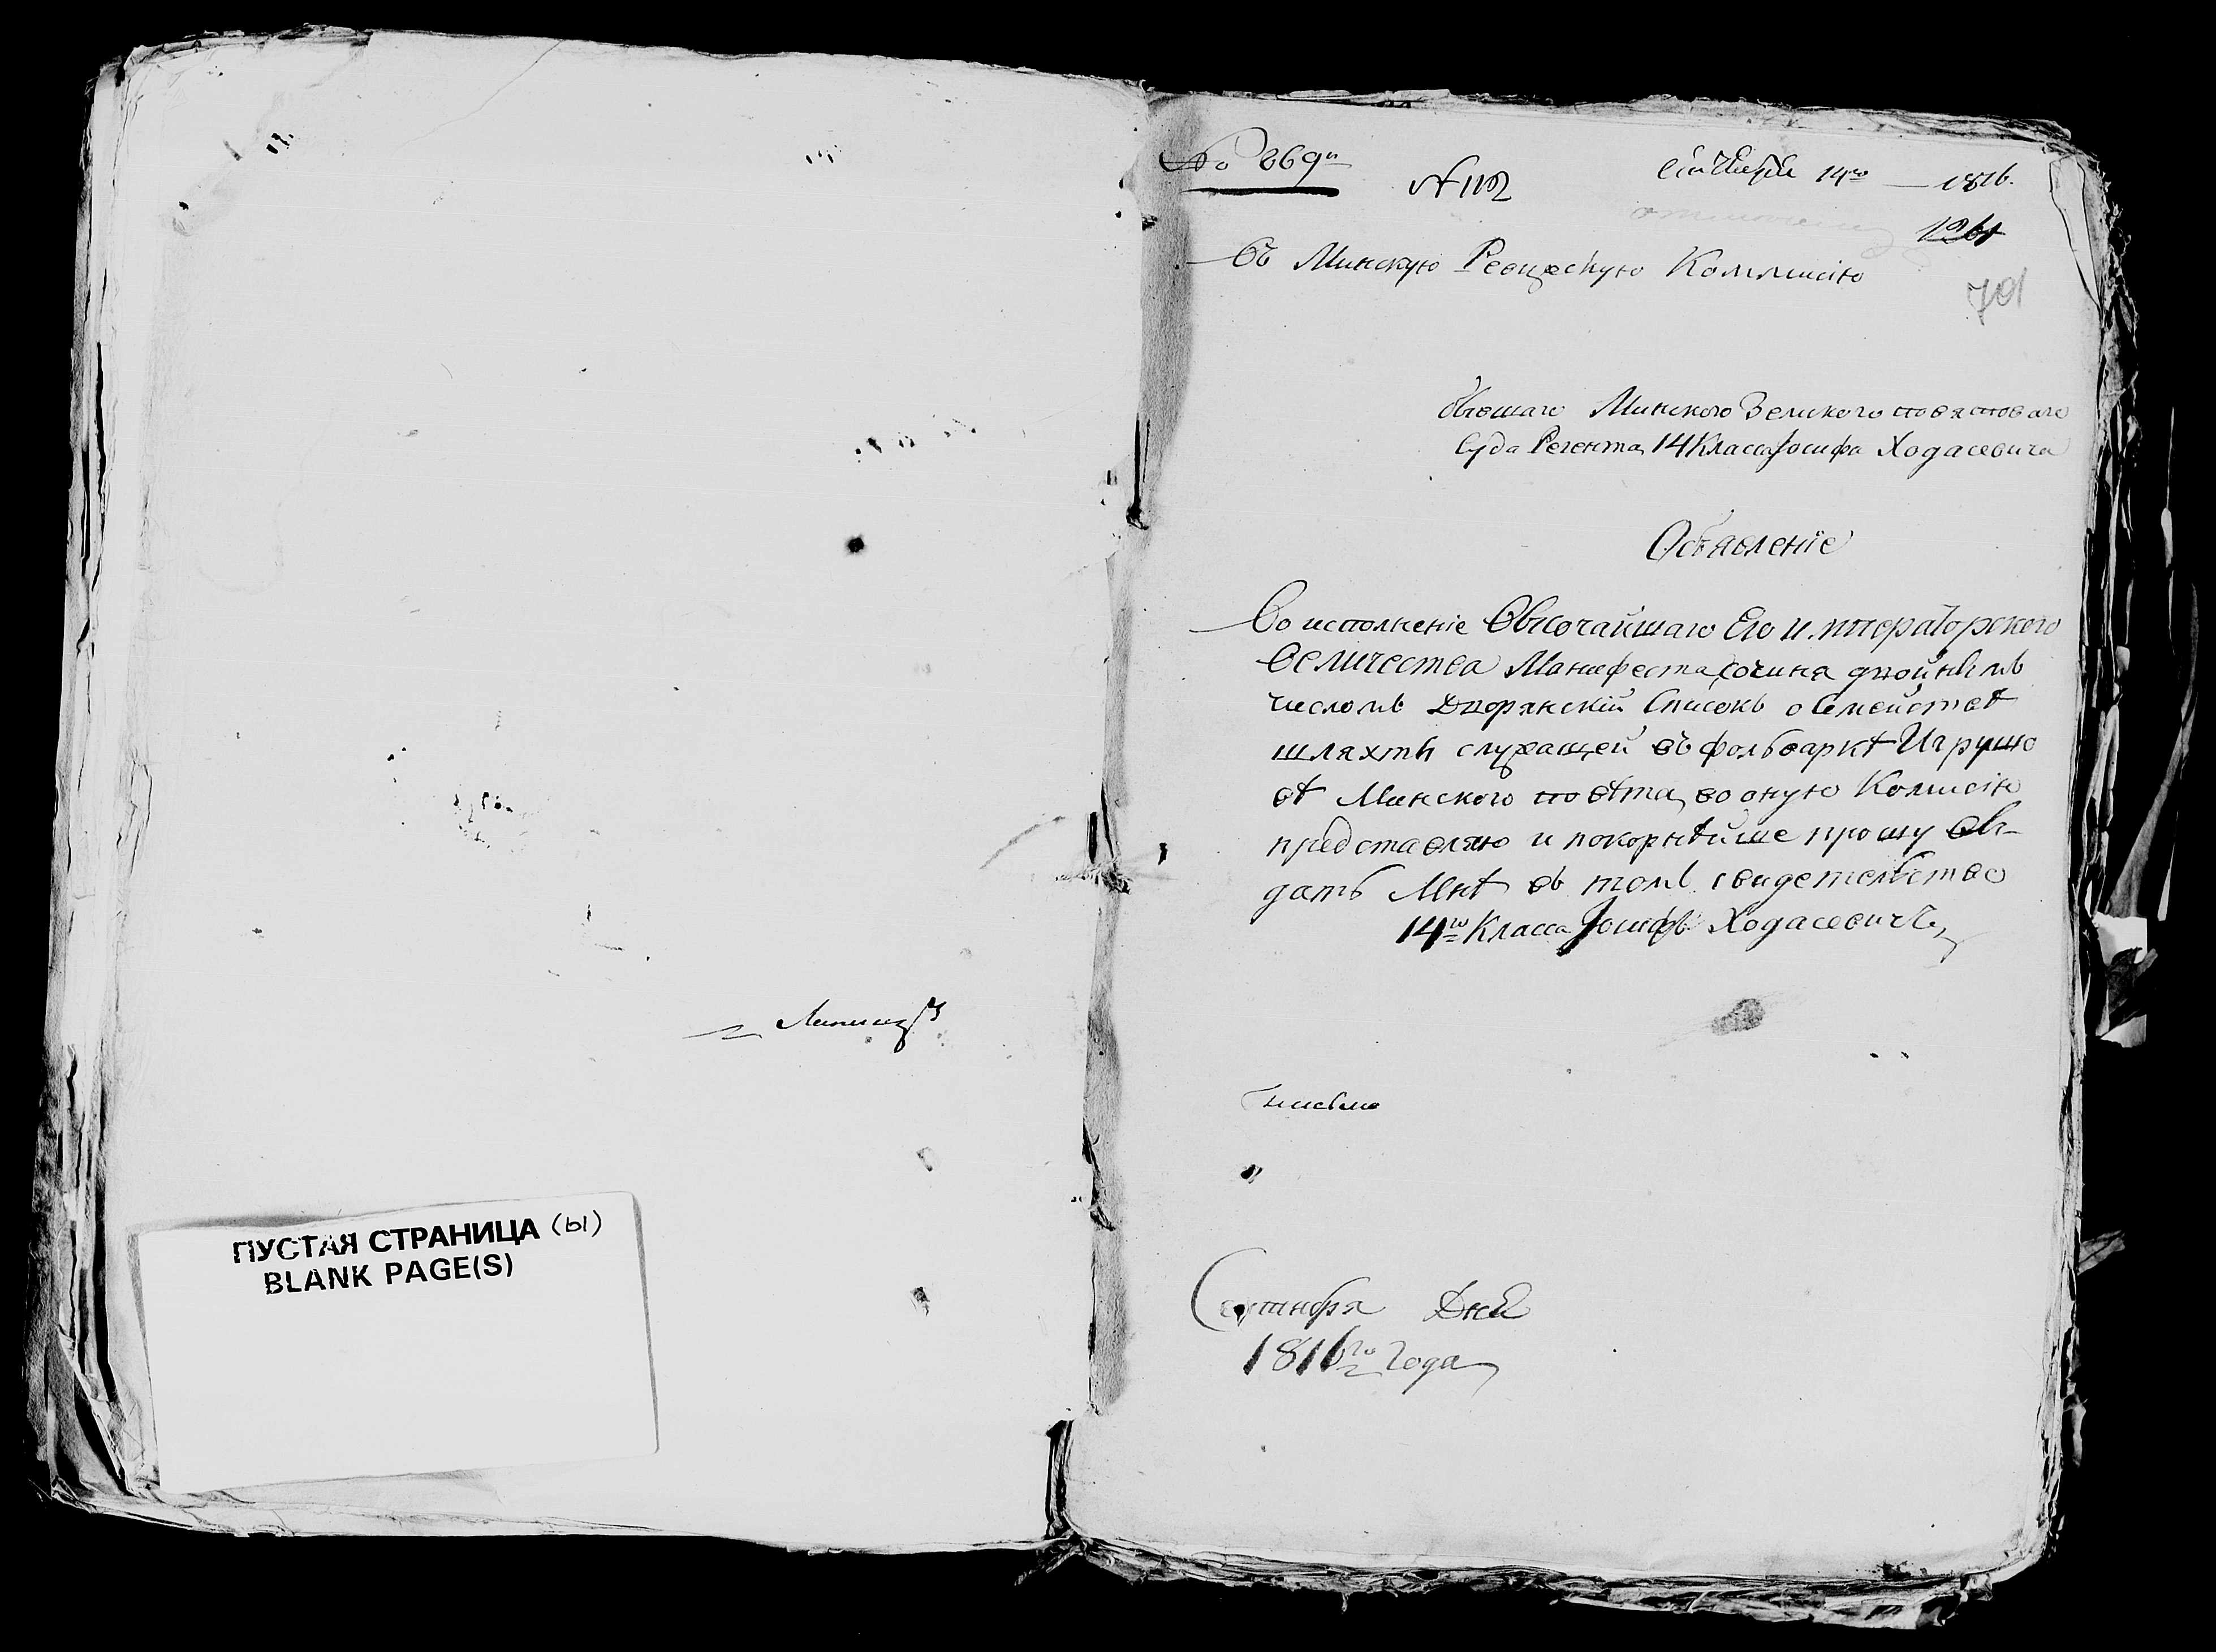 ПУСТАЯ СТРАНИЦА (ы)
BLANK PAGE(S)
No 869
N 1102
Сентября 14го — 1816.
701
Въ Минскую Ревизскую Коммисію
бывшаго Минского Земского повятоваго
Суда Регента 14 Класса Іосифа Ходасевича
Объявленіе
Во исполненіе Высочайшаго Его Императорского
Величества Манифеста сочиня двойнымъ
числомъ Дворянскій Списокъ о Семействѣ
шляхты служащей въ фольваркѣ Игрушо
вѣ Минского повѣта, во оную Комисію
представляю и покорнѣйше прошу вы-
дать Мнѣ въ томъ свидетельство
14го Класса Іосифъ Ходасевичъ
Сентября Дня
1816го Года